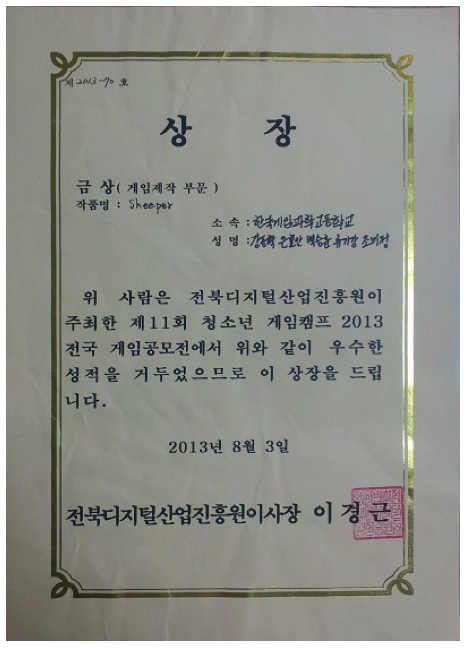 제 2013-70 호
상 장
금 상 ( 게임제작 부문 )
작품명 : Sheeper
소 속 : 한국게임과학고등학교
성 명 : 강동혁 은효산 백승훈 유기강 조미정
위 사람은 전북디지털산업진흥원이
주최한 제11회 청소년 게임캠프 2013
전국 게임공모전에서 위와 같이 우수한
성적을 거두었으므로 이 상장을 드립
니다.
2013년 8월 3일
전북디지털산업진흥원이사장 이 경 근